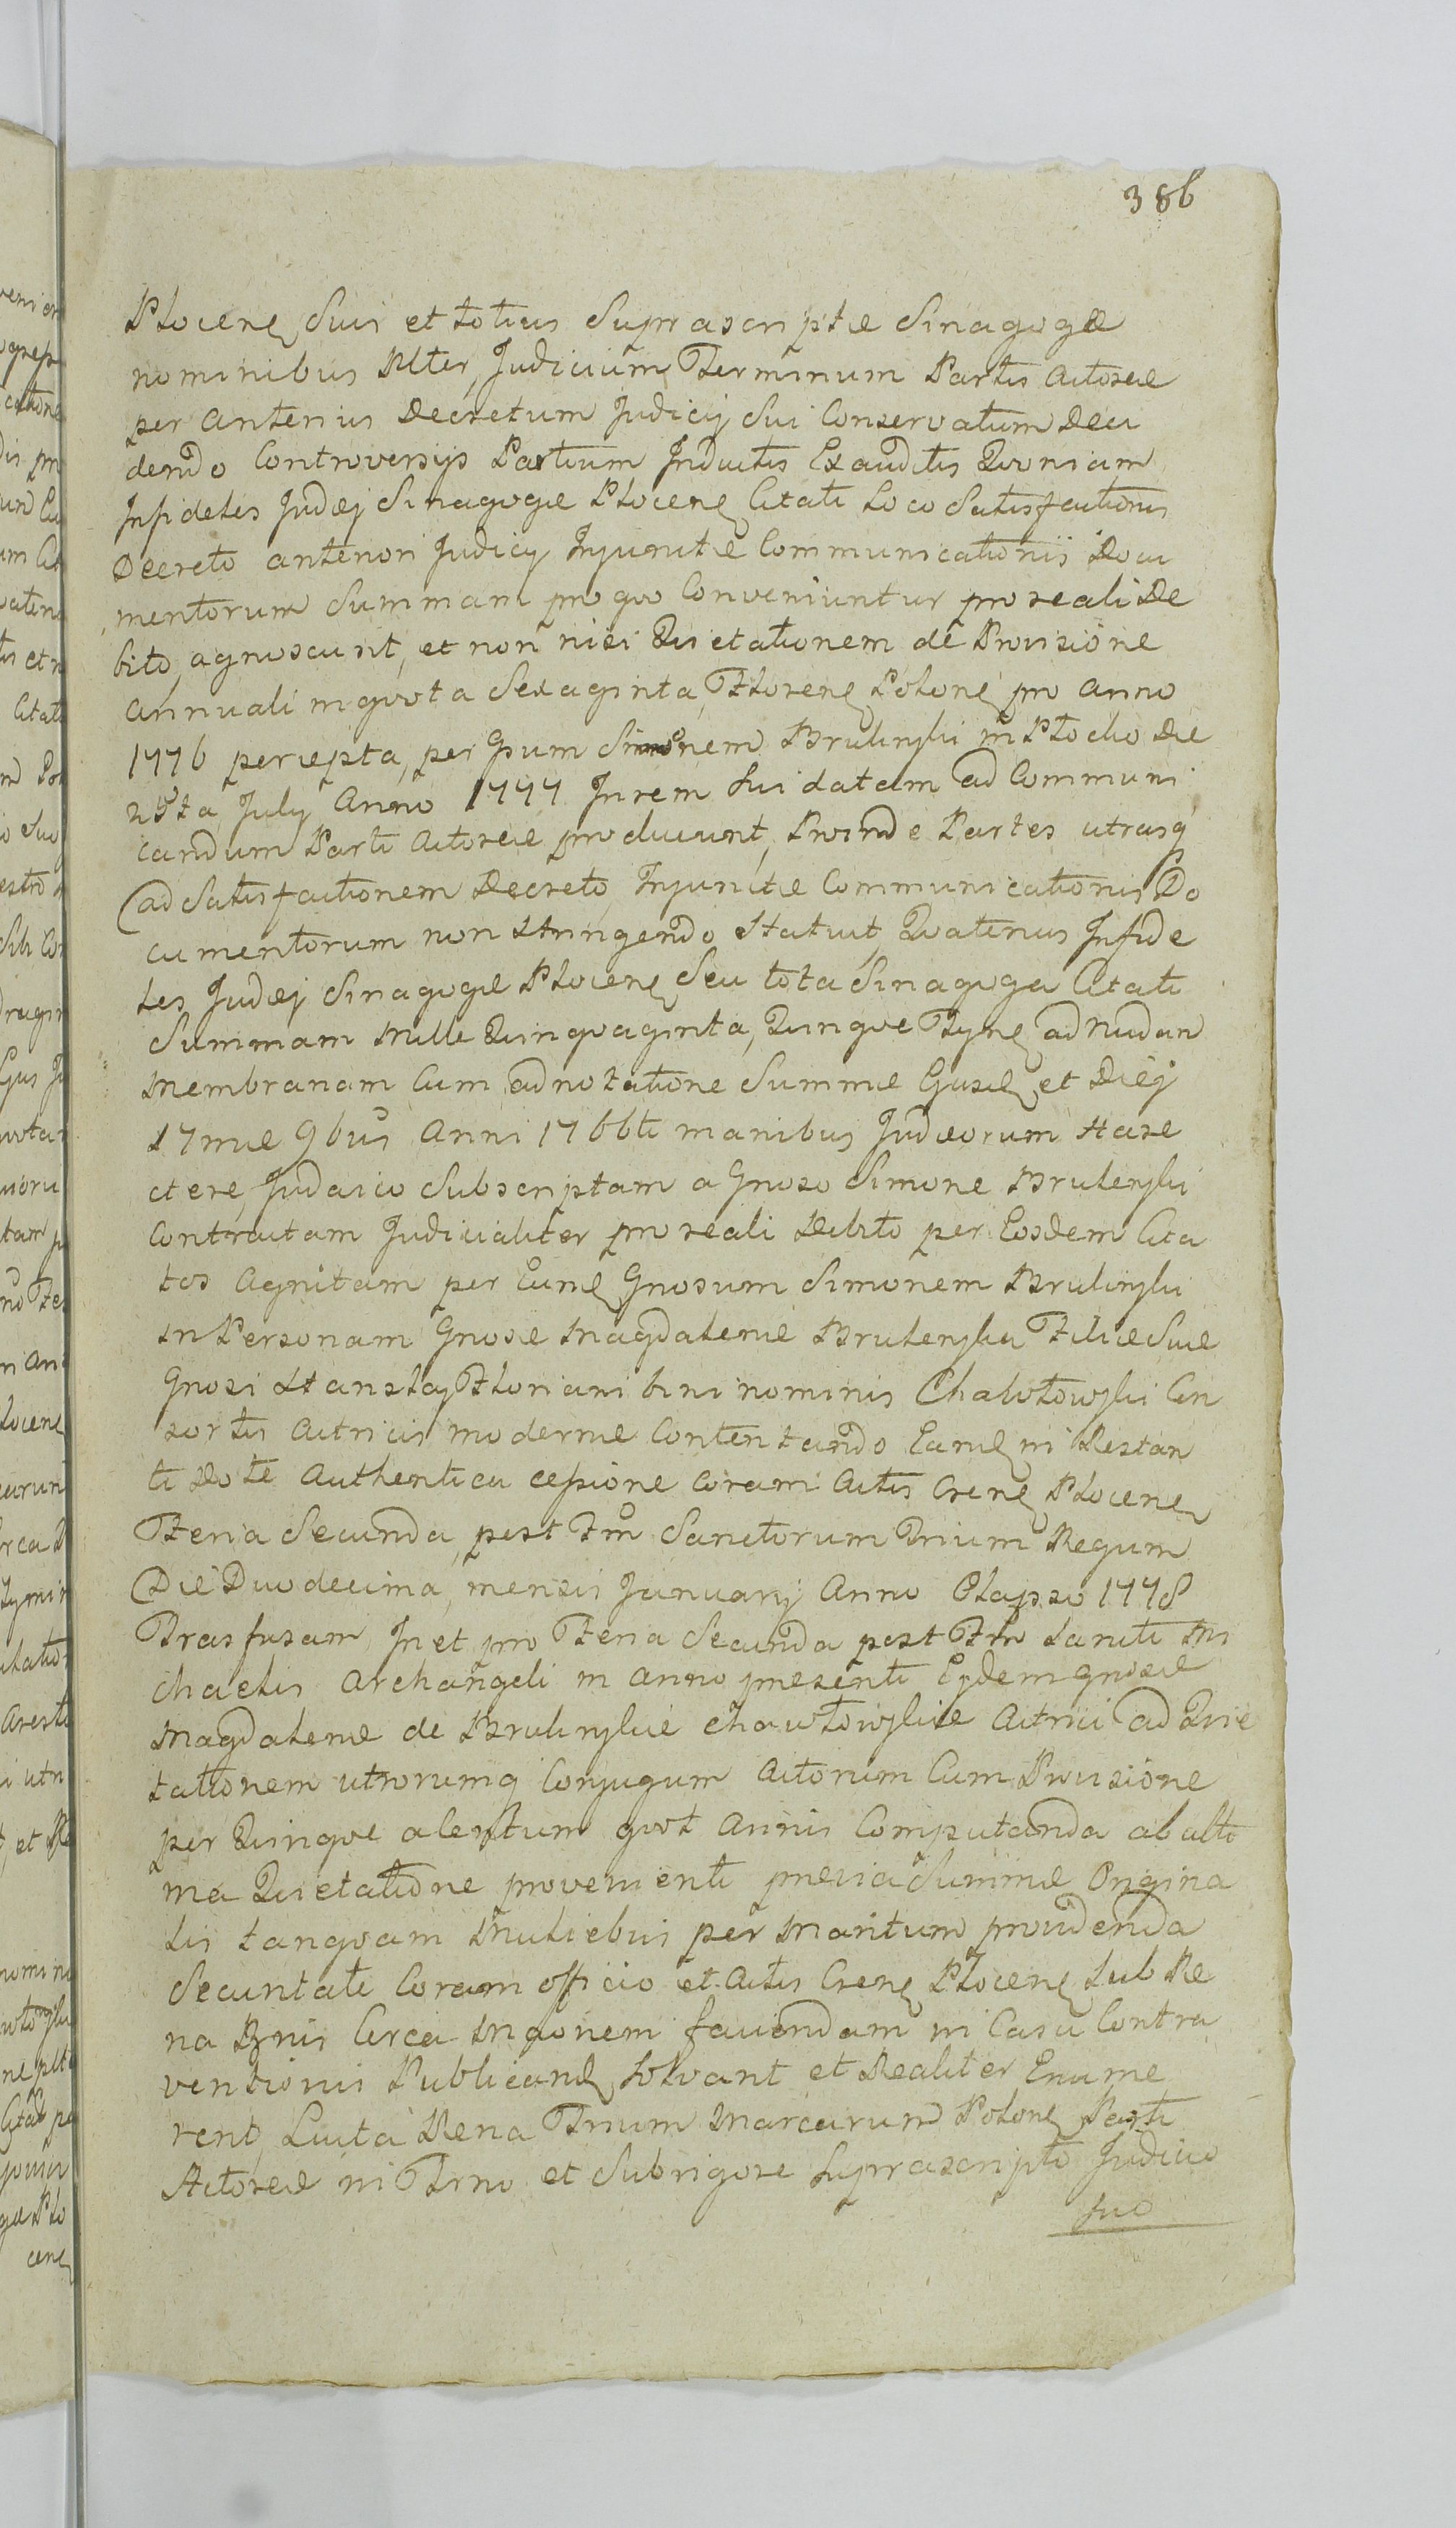 386
Plocenę Suis et totius Suprascriptæ Sinagogæ
nominibus Alter, Judicium Terminum Partis Actoreæ
per anterius Decretum Judicij Sui Conservatum Deci
dendo Controversijs Partium Inductis Exauditis Quoniam
Infideles Judæj Sinagogæ Plocenę Citati Loco Satisfactionis
Decreto anteriori Judicij Injunctæ Communicationis Docu
mentorum Summam pro quo Conveniuntur pro reali De
bito, agnoscunt, et non nisi Quietationem de Provisione
annuali in quota Sexaginta, Florenę Polonę pro anno
1776 percepta, per Gsum Simonem Brulinski in Plocko Die
July Anno 1777 In rem Sui datam ad Communi
candum Parti Actoreæ producunt, Proinde Partes utrasq
ad Satisfactionem Decreto, Injunctæ Communicationis Do
cumentorum non Stringendo Statuit, Quatenus Infide
les Judæj Sinagogæ Plocenę Seu tota Sinagoga Citati
Summam Mille Quinquaginta, Quinque Tynę ad Nudam
Membranam Cum adnotatione Summæ Ejusdę et Diej
17mæ 9bris Anni 1766ti manibus Judæorum Hare
ctere, Judaico Subscriptam a Gnoso Simone Brulenski
Contractam Judicialiter pro reali Debito per Eosdem Cita
tos Agnitam per Eundę Gnosum Simonem Brulinski
in Personam Gnosæ Magdalenæ Brulenska Filiæ Suæ
Gnosi Stanslaj Floriani bini nominis Chalotowski Con
sortis Actricis modernæ Contentando Eandę in Restan
ti Dote Authentica cessione Coram Actis Crenę Plocenę
Feria Secunda, post Ftm Sanctorum Trium Regum
Die Duodecima, mensis Januarij Anno Elapso 1778
Trasfusam, In et pro Feria Secunda post Ftm Sancti Mi
chaelis Archangeli in anno præsenti Ejdem Gnosæ
Magdalenæ de Brulinskie Chawtowskie Actrici ad Quie
tationem utrorumq Conjugum Actorum Cum Provisione
per Quinque a Centum quot Annis Computanda ab ulti
ma Quietatione provenienti prævia Summæ Origina
lis tanquam Muliebris per Maritum providenda
Securitate Coram officio et Actis Crenę Plocenę Sub Pe
na Bnnis Circa Ingonem faciendam in Casu Contra
ventionis Publicandę Solvant et Realiter Enume
rent, Luita Pena Trium Marcarum Polonę Parti
Actoreæ in Trno et Subrigore Suprascripto Judicio
suo